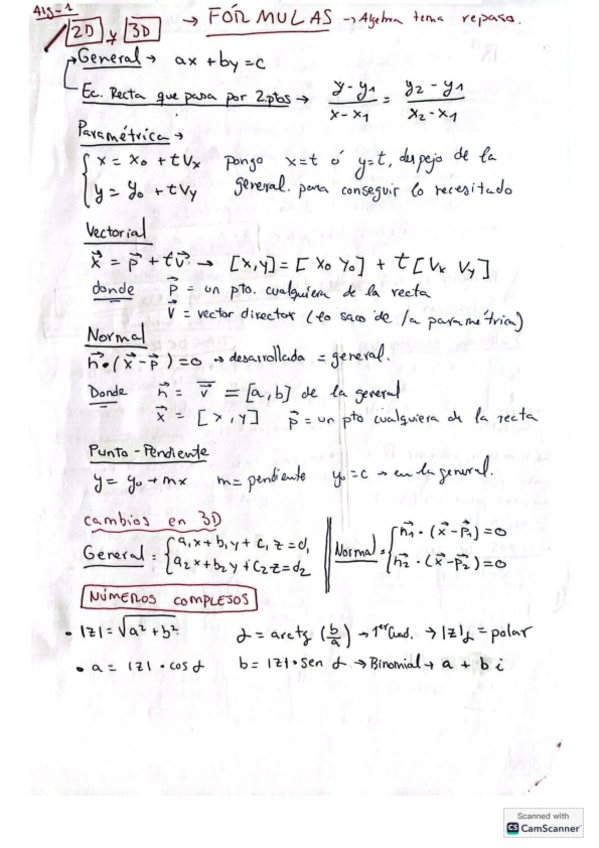 Alg-1
2D y 3D → FÓRMULAS → Algebra tema repaso.
General → ax + by = c
Ec. Recta que pasa por 2 ptos → y - y1 / x - x1 = y2 - y1 / x2 - x1
Paramétrica →
x = x0 + tVx pongo x=t ó y=t, despejo de la
y = y0 + tVy general. para conseguir lo necesitado
Vectorial
x⃗ = p⃗ + tv⃗ → [x,y] = [x0 y0] + t[Vx Vy]
donde p⃗ = un pto. cualquiera de la recta
v⃗ = vector director (lo saco de la paramétrica)
Normal
n⃗•(x⃗-p⃗)=0 → desarrollada = general.
Donde n⃗ = v̄ = [a,b] de la general
x⃗ = [x,y] p⃗ = un pto cualquiera de la recta
Punto - Pendiente
y = y0 + mx m = pendiente y0 = c → en la general.
cambios en 3D
General = a1x + b1y + c1z = d1
a2x + b2y + c2z = d2
Normal = n1⃗ • (x⃗-p1⃗) = 0
n2⃗ • (x⃗-p2⃗) = 0
NÚMEROS COMPLEJOS
• |z| = √a² + b² α = arctg (b/a) → 1er Cuad. → |z|α = polar
• a = |z| • cos α b = |z| • sen α → Binomial → a + bi
Scanned with
CS CamScanner